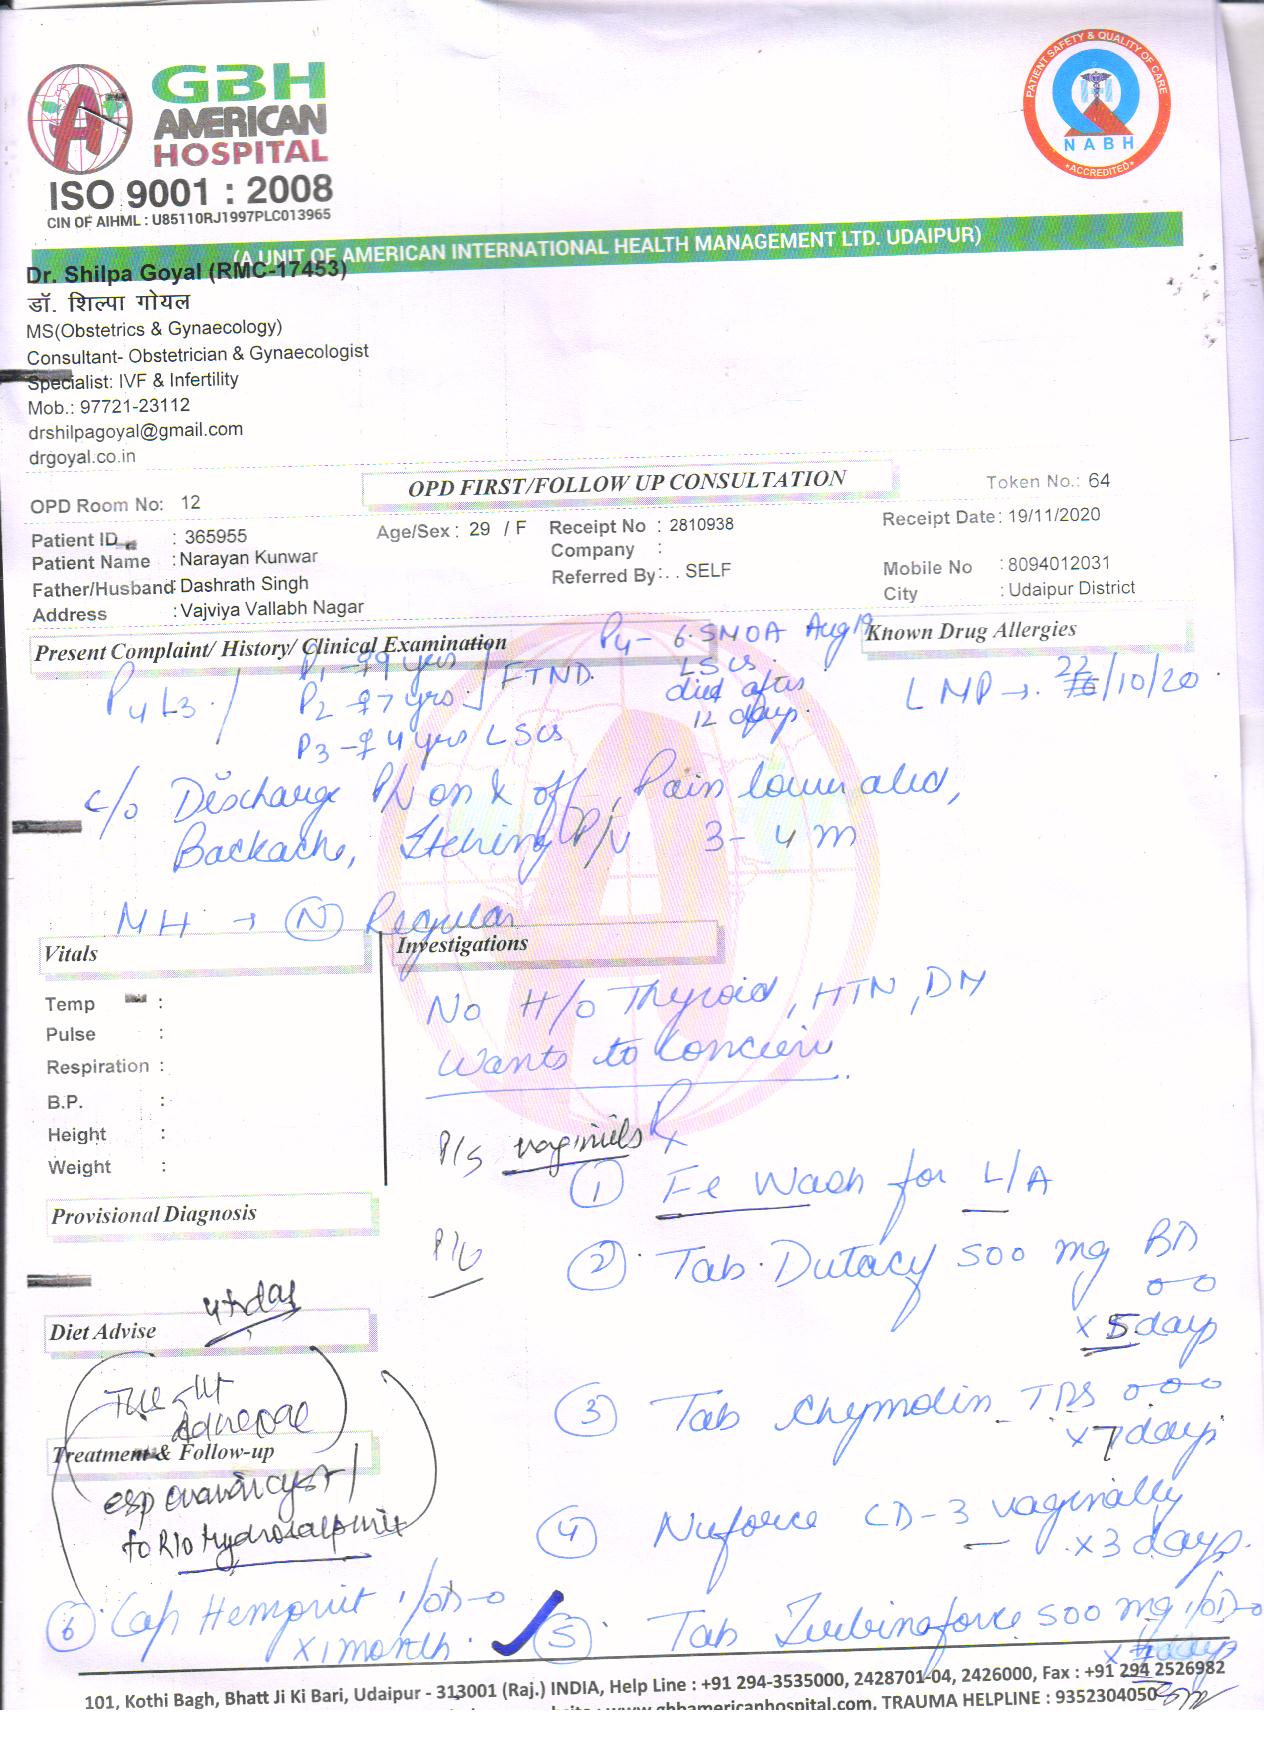 GBH
AMERICAN
HOSPITAL
ISO 9001 : 2008
CIN OF AIHML : U85110RJ1997PLC013965
PATIENT SAFETY & QUALITY OF CARE
NABH
ACCREDITED
(A UNIT OF AMERICAN INTERNATIONAL HEALTH MANAGEMENT LTD. UDAIPUR)
Dr. Shilpa Goyal (RMC-17453)
डॉ. शिल्पा गोयल
MS(Obstetrics & Gynaecology)
Consultant- Obstetrician & Gynaecologist
Specialist: IVF & Infertility
Mob.: 97721-23112
drshilpagoyal@gmail.com
drgoyal.co.in
OPD FIRST/FOLLOW UP CONSULTATION
OPD Room No: 12
Token No.: 64
Patient ID : 365955
Age/Sex : 29 / F
Receipt No : 2810938
Receipt Date: 19/11/2020
Patient Name : Narayan Kunwar
Company :
Father/Husband: Dashrath Singh
Referred By: . . SELF
Mobile No : 8094012031
Address : Vajviya Vallabh Nagar
City : Udaipur District
Present Complaint/ History/ Clinical Examination
Known Drug Allergies
P4 L3
P1 - 9 yrs
P2 - 7 yrs
FTND
P3 - 4 yrs LSCS
P4 - 6. SMOA Aug 19
LSCS
died after
12 days.
LMP → 22/10/20
c/o Discharge P/V on & off, Pain lower abd,
Backache, Itching P/V 3-4 m
MH → (N) Regular
Vitals
Investigations
Temp :
Pulse :
Respiration :
B.P. :
Height :
Weight :
No H/o Thyroid, HTN, DM
Wants to Concieve
P/S vaginitis
Rx
1 Fe Wash for L/A
Provisional Diagnosis
P/V
2 Tab. Dutacy 500 mg BD
x 5 days
Diet Advise
3 Tab Chymolin TDS
x 7 days
Treatment & Follow-up
ovarian cyst/
to R/o Hydrosalpinx
4 Nuforce CD-3 vaginally
x 3 days.
5 Tab Zerbinaforce 500 mg 1/OD
6 Cap 1/OD
x 1 month.
101, Kothi Bagh, Bhatt Ji Ki Bari, Udaipur - 313001 (Raj.) INDIA, Help Line : +91 294-3535000, 2428701-04, 2426000, Fax : +91 294 2526982
www.gbhamericanhospital.com, TRAUMA HELPLINE : 9352304050